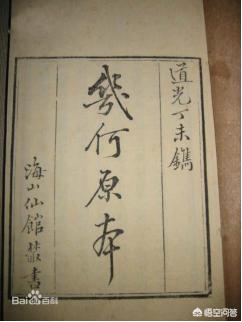 道光丁未鐫
幾何原本
海山仙館叢書
Bai百科
悟空问答